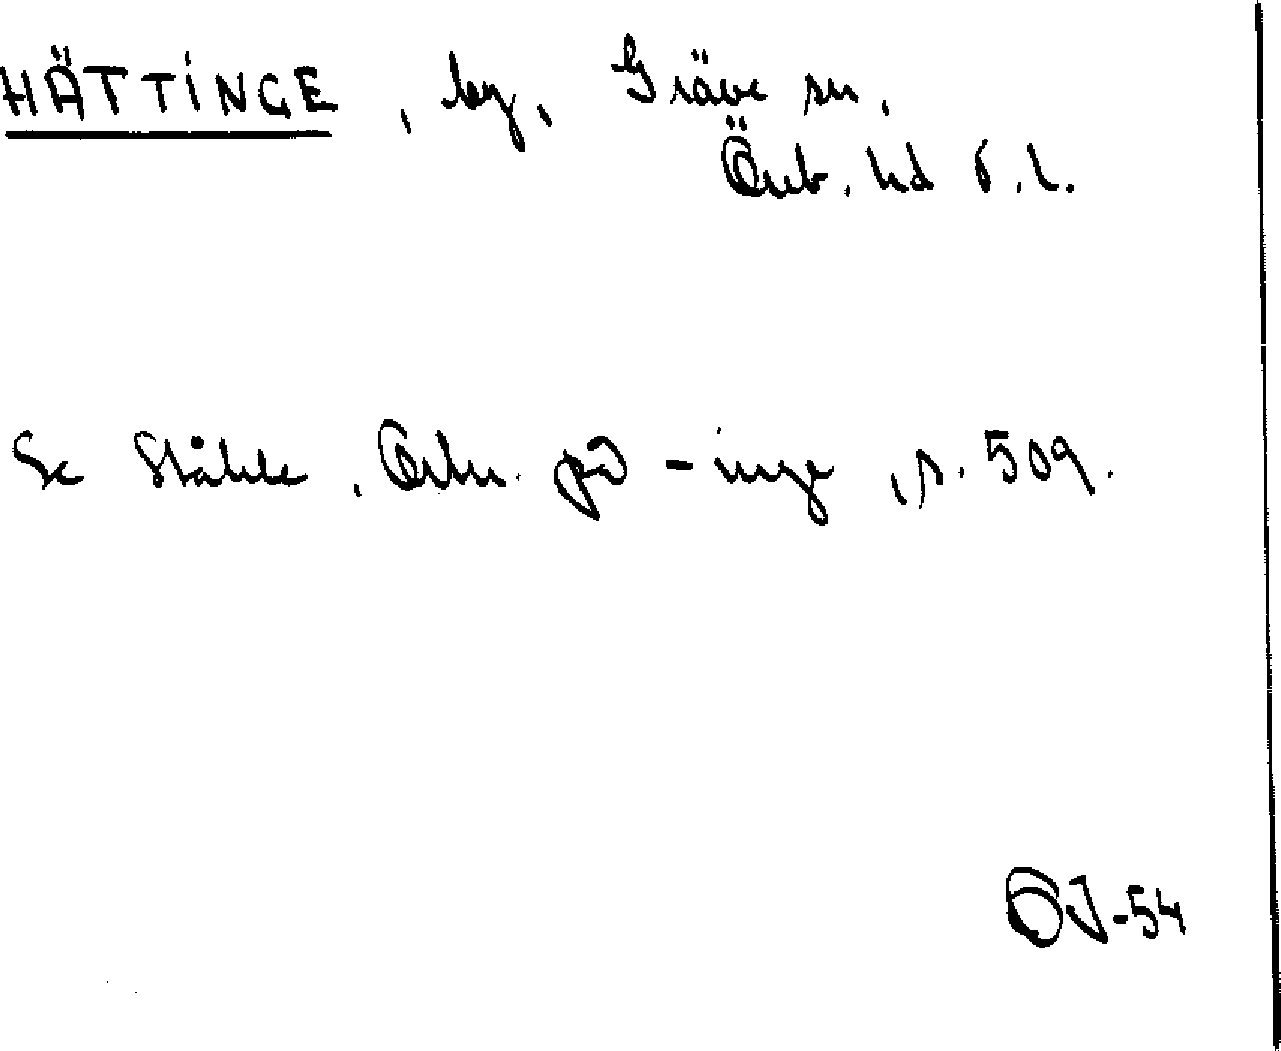 HÄTTINGE, by, Gräve sn,
Öreb. hd ö.l.
Se Ståhle, Ortn. på -inge, s. 509.
OJ-54